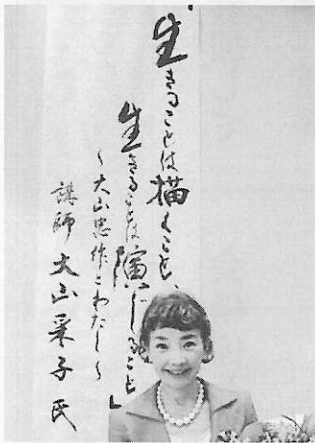 生きることは描くこと、
生きることは演じること」
～大山忠作とわたし～
講師 大山采子 氏